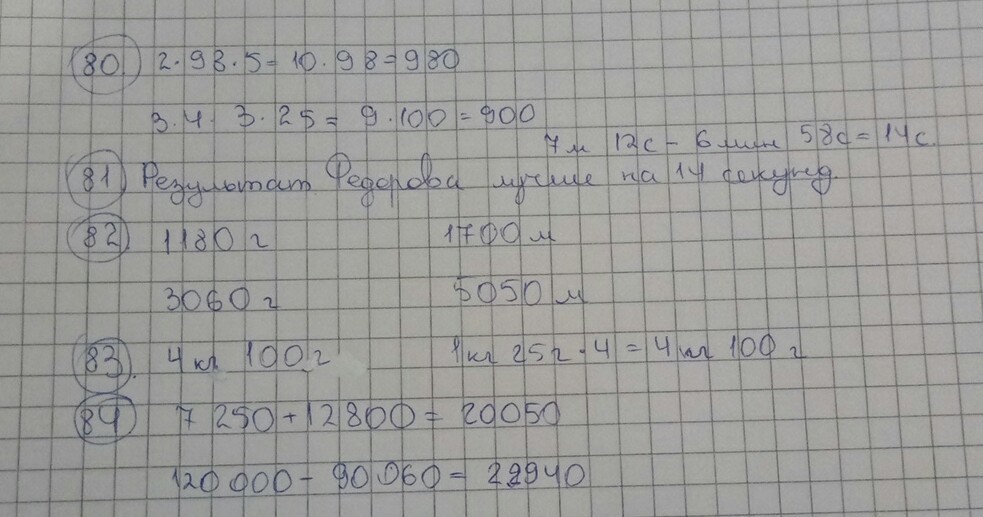 80 2·98·5=10·98=980
3·4·3·25=9·100=900
7м 12с - 6мин 58с=14с.
81 Результат Федорова лучше на 14 секунд.
82 1180 г 1700 м
3060 г 5050 м
83. 4 кг 100 г 1кг 25г·4=4кг 100 г
84 7 250+12800=20050
120 000-90 060=29940